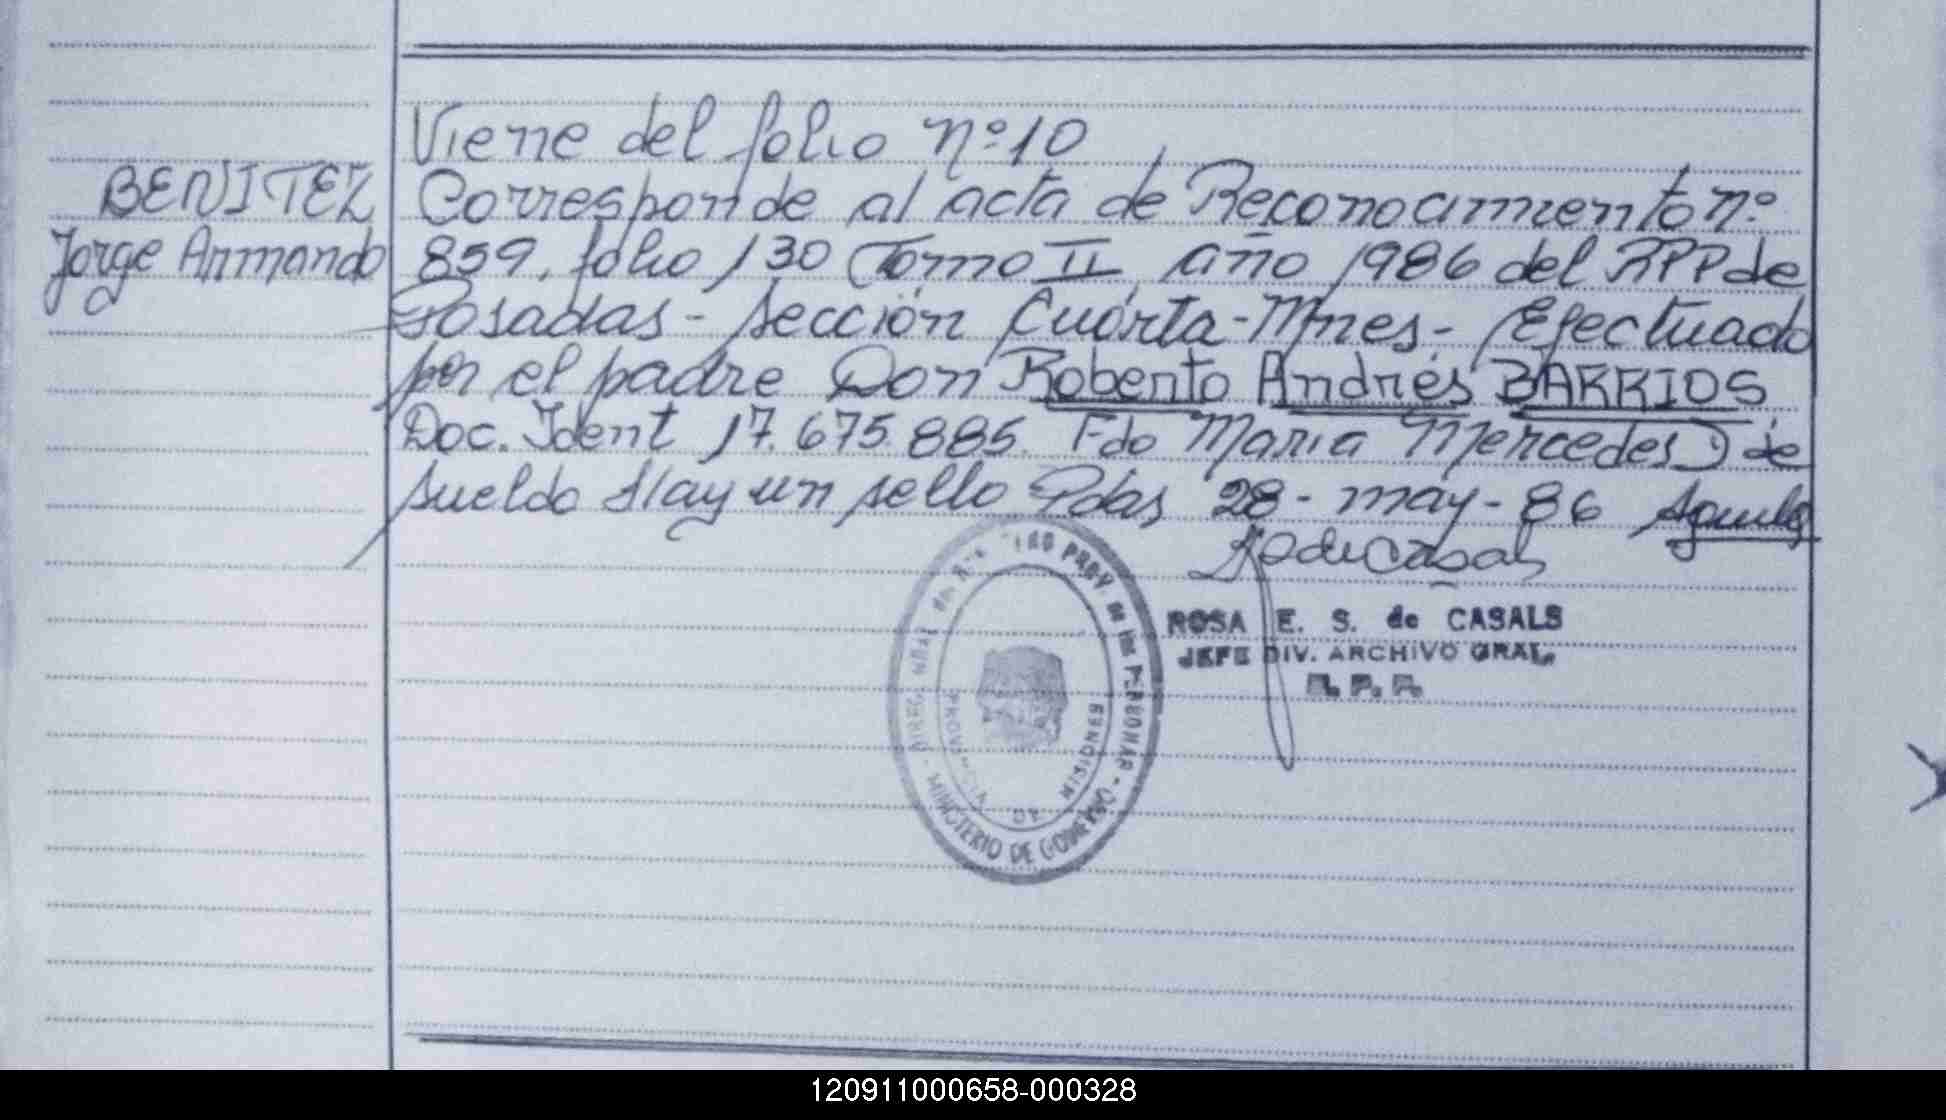 Viene del folio nº 10
BENITEZ
Jorge Armando
Corresponde al acta de Reconocimiento nº
859, folio 130 Tomo II, año 1986 del RPP de
Posadas - Sección Cuarta - Mnes - Efectuado
por el padre Don Roberto Andrés BARRIOS
Doc. Ident 17.675.885. Fdo Maria Mercedes D de
Sueldo Hay un sello Pdas 28 - may - 86
ROSA E. S. de CASALS
JEFE DIV. ARCHIVO GRAL.
R. P. P.
PROV. DE LAS PERSONAS - MINISTERIO DE GOBIERNO
PROVINCIA DE MISIONES
120911000658-000328